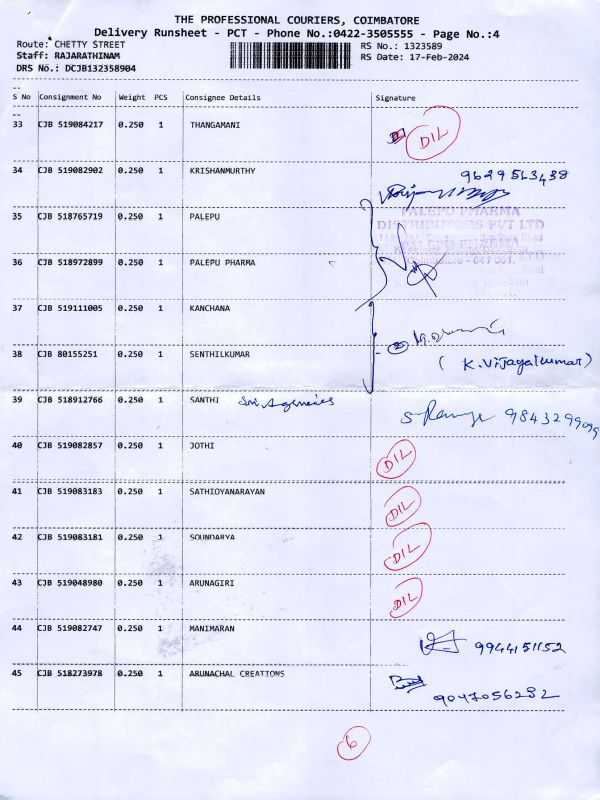 THE PROFESSIONAL COURIERS, COIMBATORE
Delivery Runsheet - PCT - Phone No.:0422-3505555 - Page No.:4
Route: CHETTY STREET RS No.: 1323589
Staff: RAJARATHINAM RS Date: 17-Feb-2024
DRS No.: DCJB132358904
--
S No Consignment No Weight PCS Consignee Details Signature
--
33 CJB 519084217 0.250 1 THANGAMANI DIL
34 CJB 519082902 0.250 1 KRISHANMURTHY 9629563438
35 CJB 518765719 0.250 1 PALEPU
PALEPU PHARMA
DISTRIBUTORS PVT LTD
36 CJB 518972899 0.250 1 PALEPU PHARMA
37 CJB 519111005 0.250 1 KANCHANA
38 CJB 80155251 0.250 1 SENTHILKUMAR (K. Vijayalkumar)
39 CJB 518912766 0.250 1 SANTHI Sri. Agencies 9843299099
40 CJB 519082857 0.250 1 JOTHI DIL
41 CJB 519083183 0.250 1 SATHIOYANARAYAN DIL
42 CJB 519083181 0.250 1 SOUNDARYA DIL
43 CJB 519048980 0.250 1 ARUNAGIRI DIL
44 CJB 519082747 0.250 1 MANIMARAN 9944151152
45 CJB 518273978 0.250 1 ARUNACHAL CREATIONS 9047056282
6